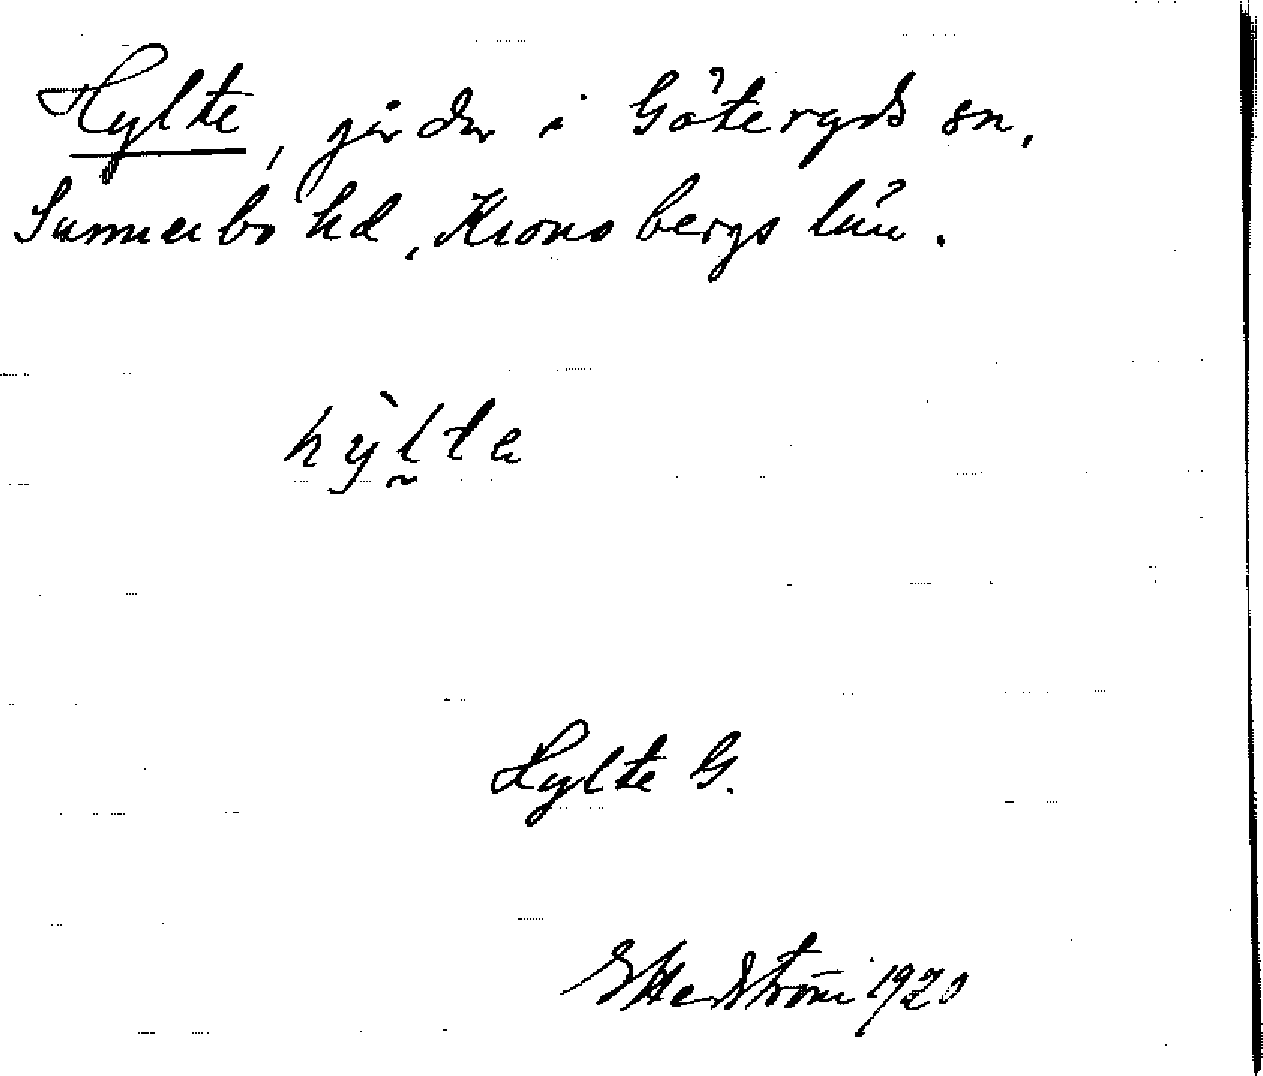 Hylte, gårdar i Göteryds sn,
Sunnerbo hd, Kronobergs län.
hỳlte
Hylte G.
E Hedström 1920